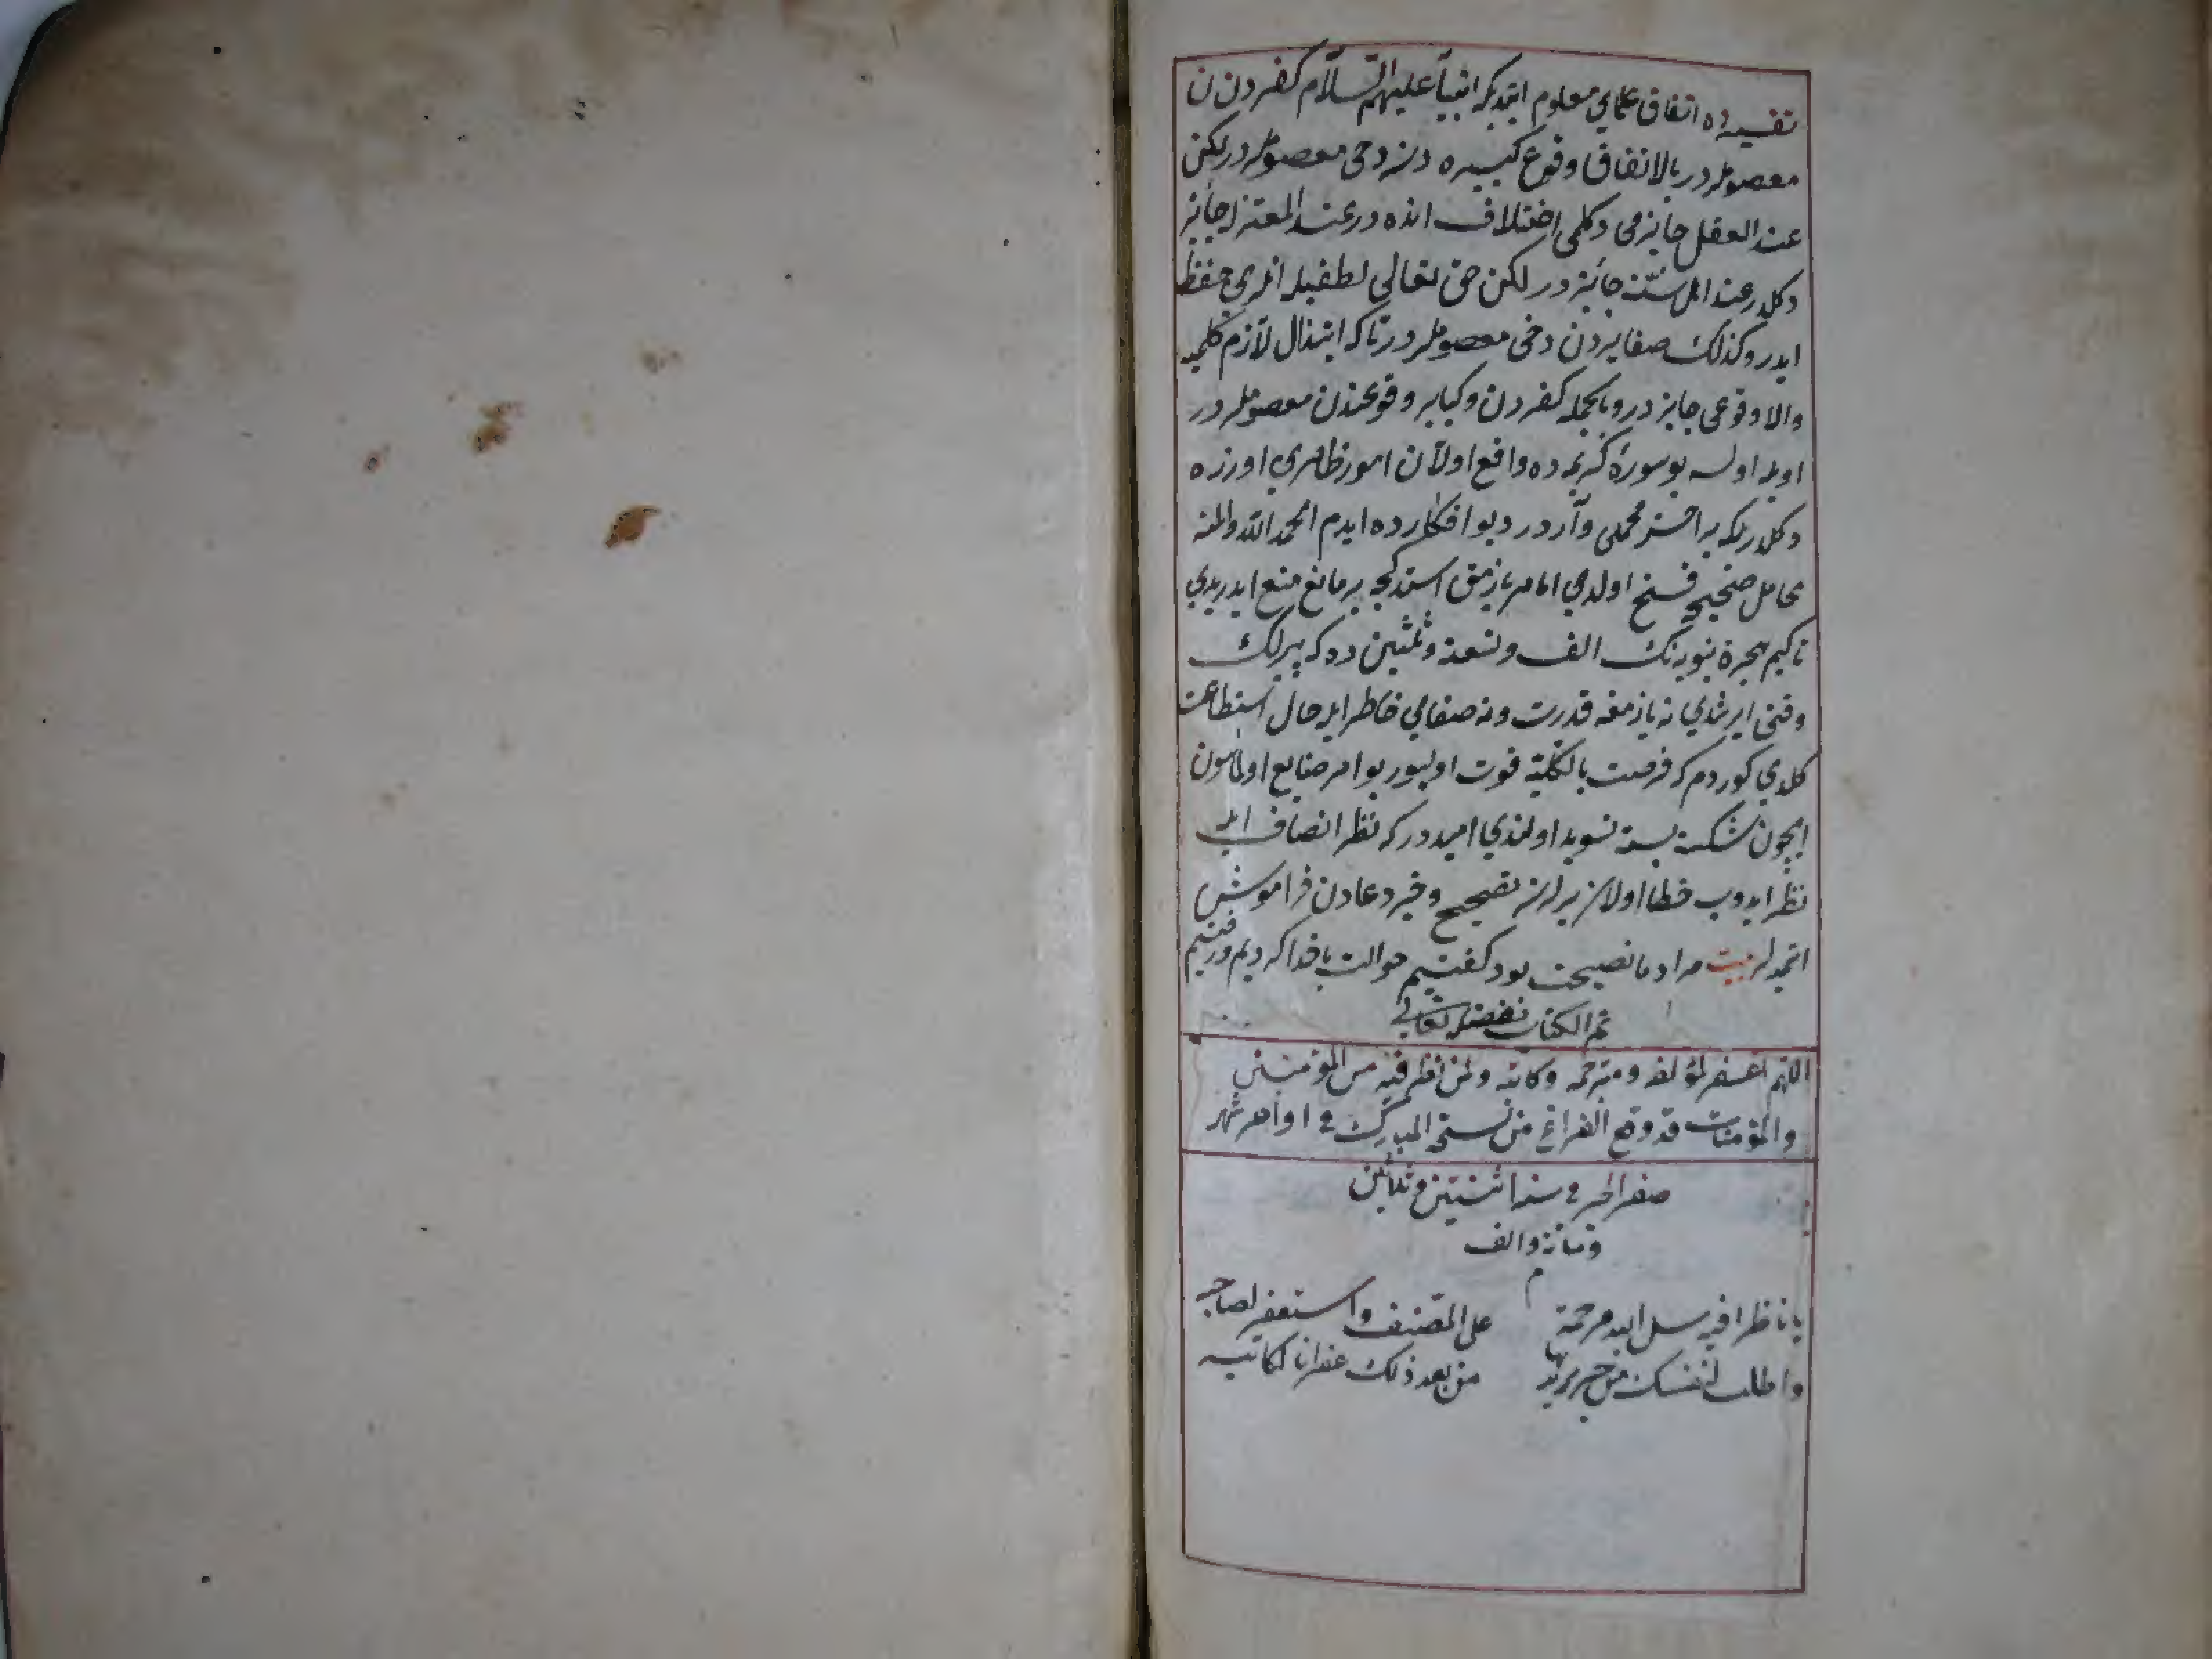 تفسيرده اتفاق علمايي معلوم ايتديكه انبيآ عليهم السّلام كفردن
معصوملردر بالاتفاق وقوع كبيره دن دخى معصوملردر لكن
عند العقل جايزمى دكلمى اختلاف انده در عند المعتزله جائز
دكلدر عند اهل سنّت جائز در لكن حق تعالى لطفيله انلرى حفظ
ايدر وكذلك صغايردن دخى معصوملردر تاكه ابتذال لآزم كلميه
والا وقوعى جايز در وبالجمله كفردن وكباير وقوعندن معصوملردر
اويله اولسه بو سورۀ كريمه ده واقع اولآن امور ظاهرى اوزره
دكلدر بلكه بر احسن محملى وآردر ديو افكارده ايدم الحمد الله والمنه
محامل صحيحه فتح اولدى اما هر يازمق استدكجه بر مانع منع ايدريدى
تا كيم هجرة نبويه نك الف وتسعة وثلثين ده كه پيرلك
وقتى ايرشدى نه يازمغه قدرت ونه صفاى خاطر ايله حال استطاعت
كلدى كوردم كه فرصت بالكليّه فوت اوليور بو امر ضايع اولماسون
ايچون شكسته بسته تسويد اولندى اميددر كه نظر انصاف ايله
نظر ايدوب خطا اولان يرلرنى تصحيح وخير دعادن فراموش
ايتميه لر بيت مراد ما نصيحت بود كفتيم حوالت با خدا كرديم ورفتيم
تم الكتاب بفضله تعالى
اللهم اغفر لمؤلفه ومترجمه وكاتبه ولمن نظر فيه من المؤمنين
والمؤمنات قد وقع الفراغ من نسخه المبارك فى اواخر شهر
صفر الخير فى سنه اثنتين وثلاثين
ومائة والف
م
يا ناظرا فيه سل الله مرحمة على المصنف واستغفر لصاحبه
واطلب لنفسك من خير تريد بها من بعد ذلك غفرانا لكاتبه